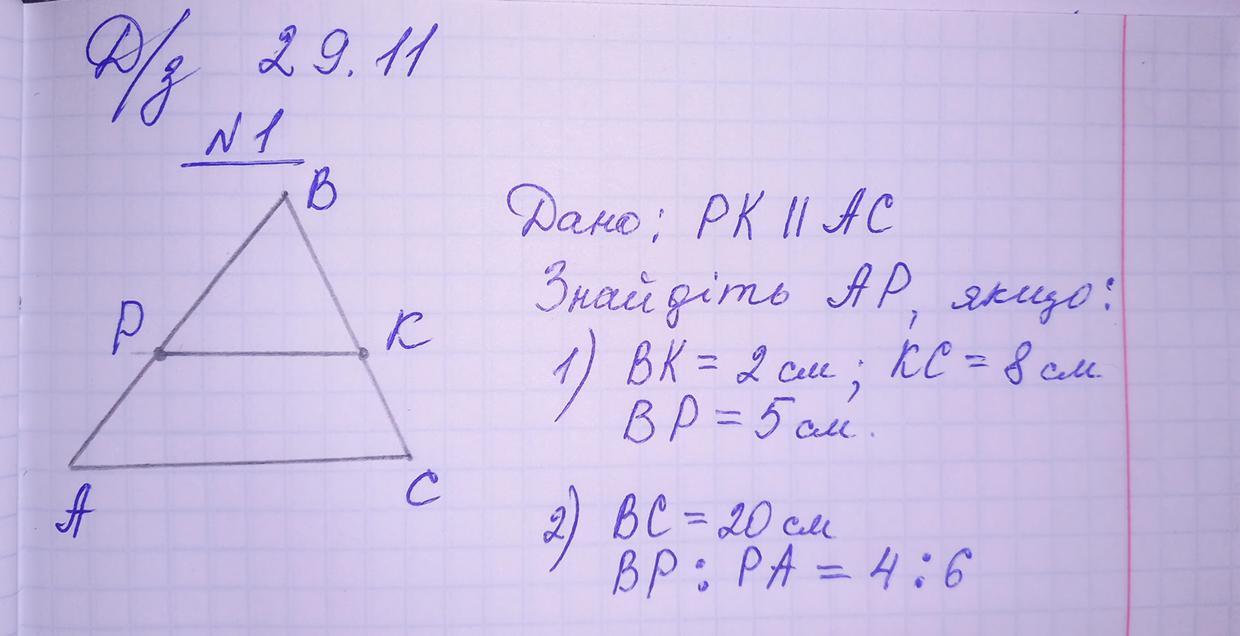 Д/з 29.11
N1
B
P
K
A
C
Дано: PK || AC
Знайдіть AP, якщо:
1) BK = 2 см; KC = 8 см
BP = 5 см.
2) BC = 20 см
BP : PA = 4 : 6